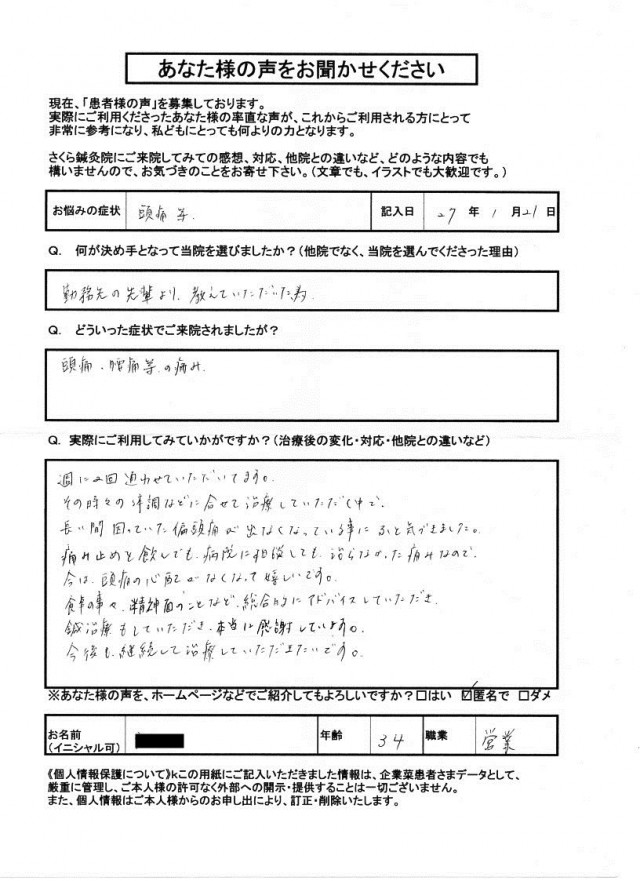 あなた様の声をお聞かせください
現在、「患者様の声」を募集しております。
実際にご利用くださったあなた様の率直な声が、これからご利用される方にとって
非常に参考になり、私どもにとっても何よりの力となります。
さくら鍼灸院にご来院してみての感想、対応、他院との違いなど、どのような内容でも
構いませんので、お気づきのことをお寄せ下さい。（文章でも、イラストでも大歓迎です。）
お悩みの症状 頭痛等. 記入日 27 年 1 月 21 日
Q. 何が決め手となって当院を選びましたか？（他院でなく、当院を選んでくださった理由）
勤務先の先輩より、教えていただいた為.
Q. どういった症状でご来院されましたか？
頭痛・腰痛等の痛み.
Q. 実際にご利用してみていかがですか？（治療後の変化・対応・他院との違いなど）
週に2回通わせていただいてます。
その時々の体調などに合せて治療していただく中で、
長い間困っていた偏頭痛が出なくなっている事にふと気づきました。
痛み止めを飲んでも、病院に相談しても、治らなかった痛みなので、
今は、頭痛の心配がなくなって嬉しいです。
食事の事や、精神面のことなど、総合的にアドバイスしていただき、
鍼治療もしていただき、本当に感謝しています。
今後も、継続して治療していただきたいです。
※あなた様の声を、ホームページなどでご紹介してもよろしいですか？□はい ☑匿名で □ダメ
お名前 年齢 34 職業 営業
（イニシャル可）
《個人情報保護について》kこの用紙にご記入いただきました情報は、企業菜患者さまデータとして、
厳重に管理し、ご本人様の許可なく外部への開示・提供することは一切ございません。
また、個人情報はご本人様からのお申し出により、訂正・削除いたします。